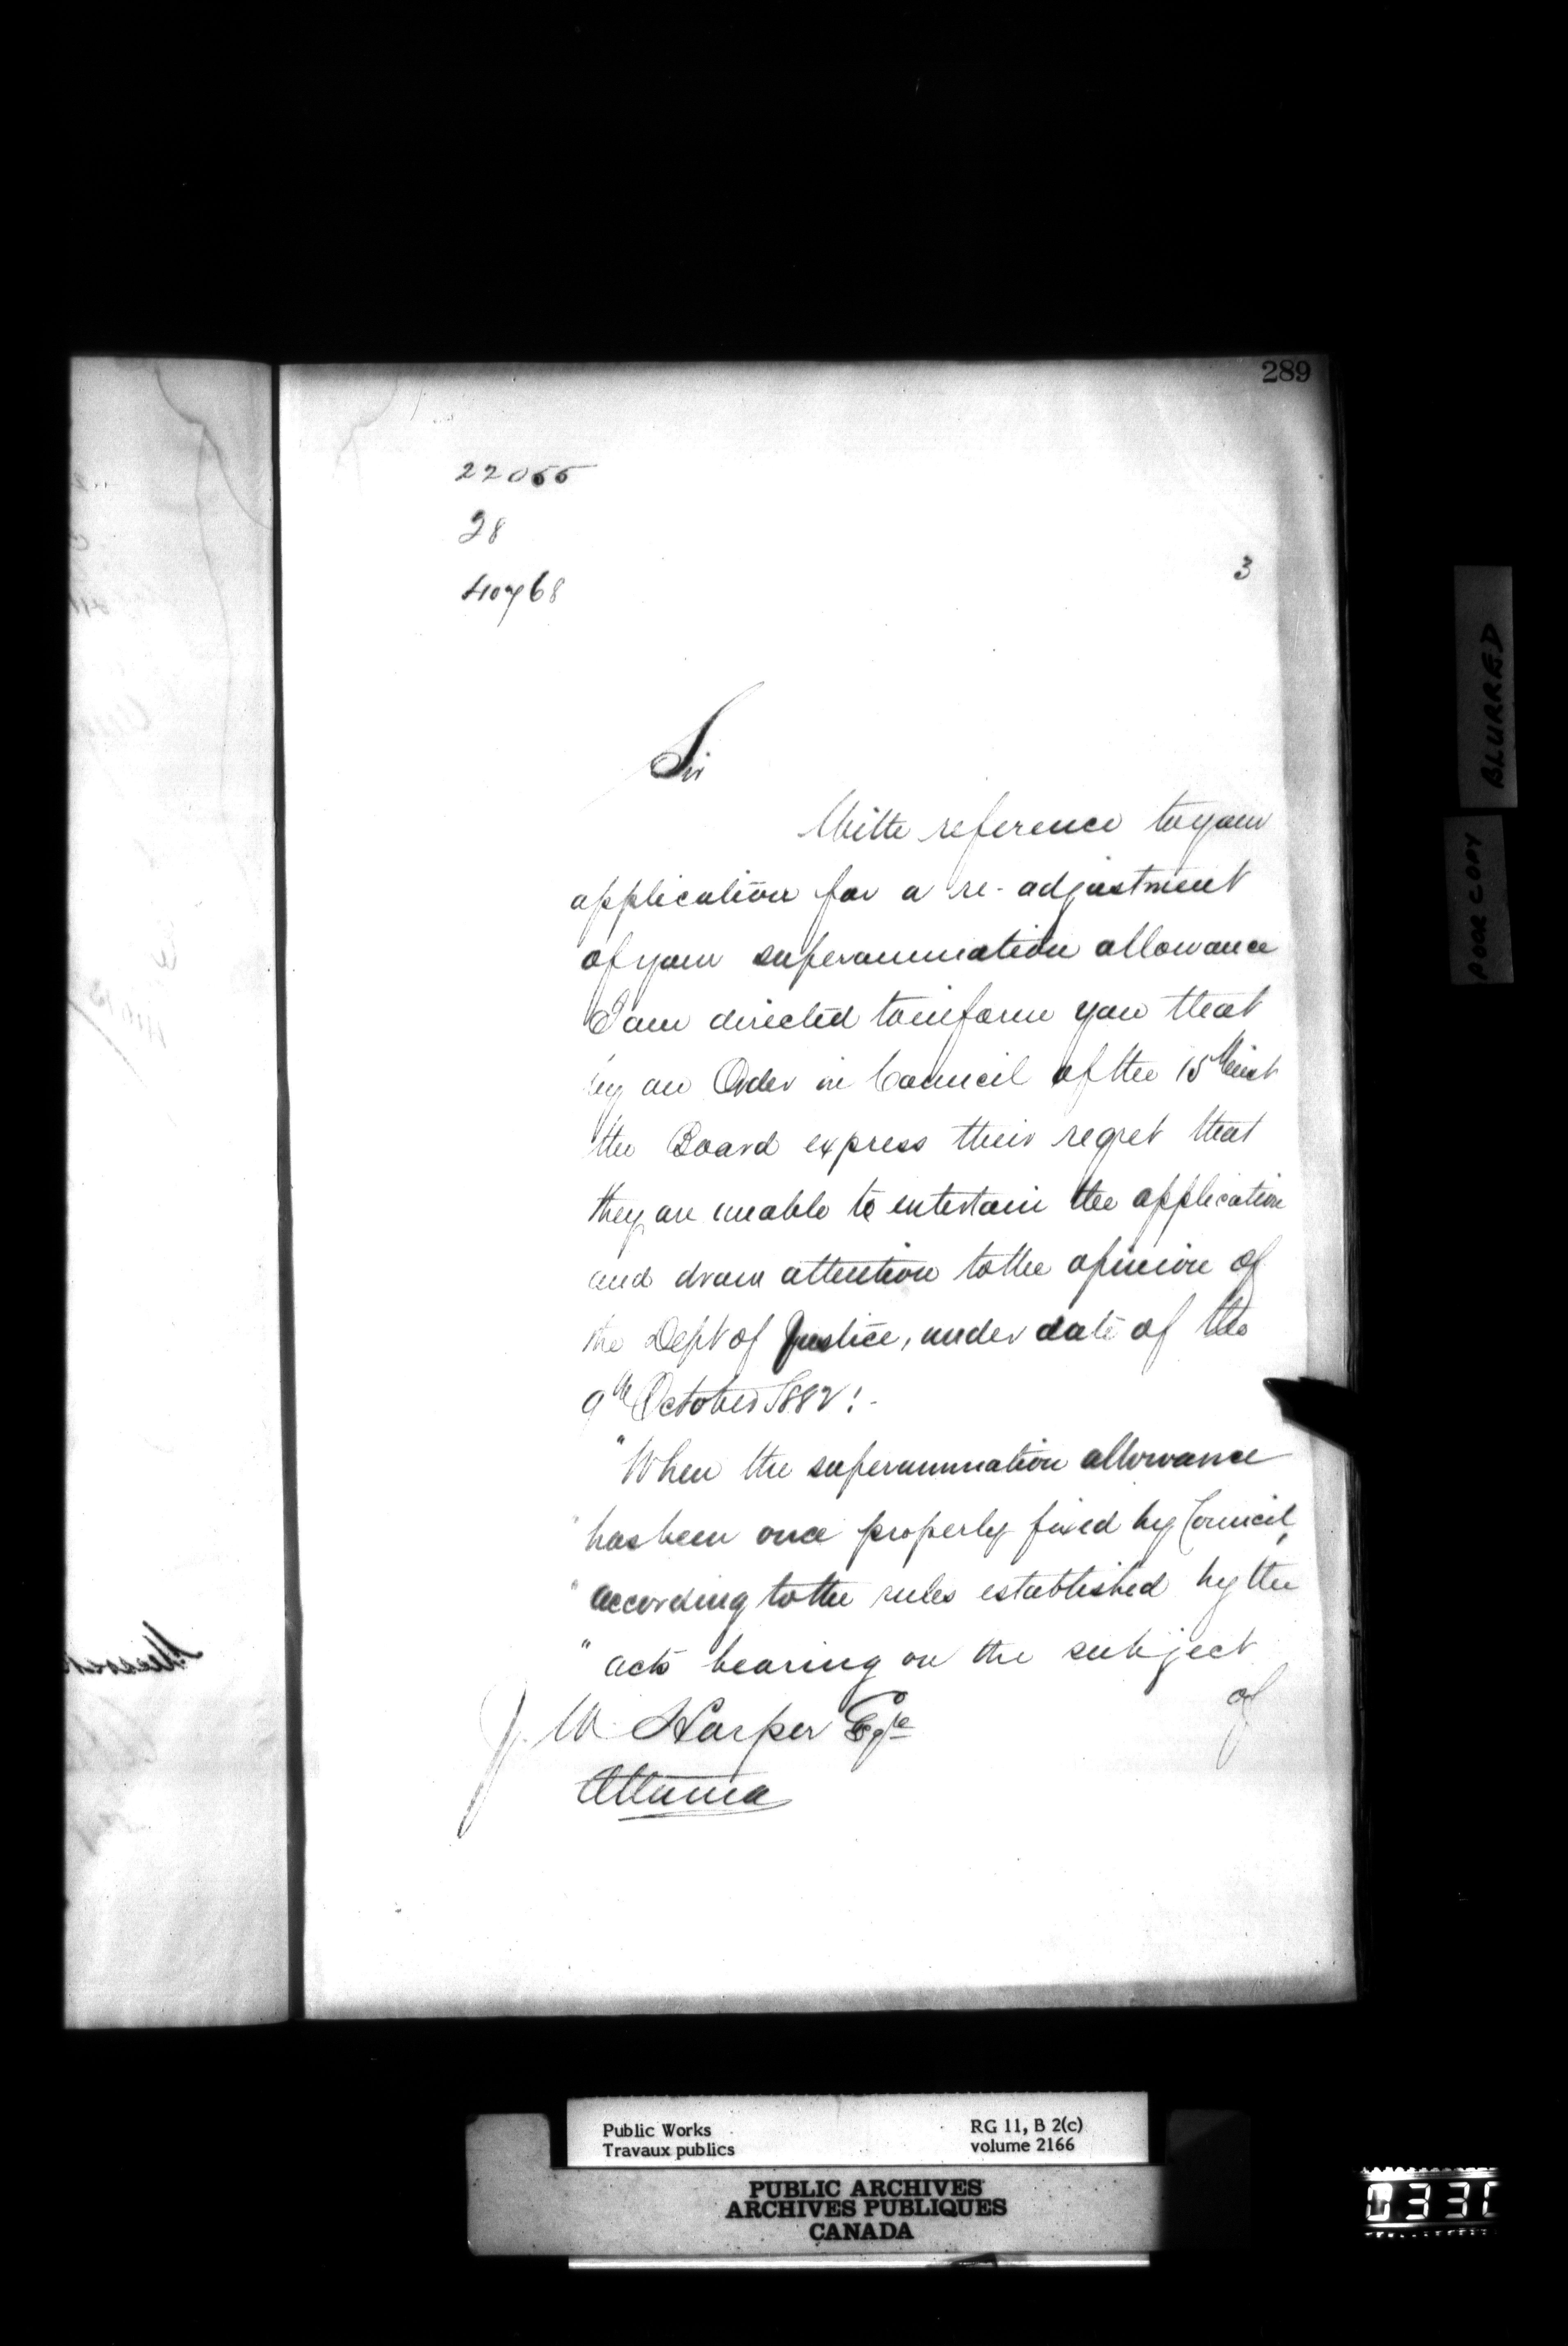 289
22055
28
40768
3
Sir
With reference to your
application for a re-adjustment
of your superannuation allowance
I am directed to inform you that
by an Order in Council of the 15th inst
the Board express their regret that
they are unable to entertain the application
and draw attention to the opinion of
the Dept of Justice, under date of the
9th October 1882:-
"When the superannuation allowance
"has been once properly fixed by Council,
"according to the rules established by the
"acts bearing on the subject
of
J. W. Harper Esqre
Ottawa
BLURRED
POOR COPY
Public Works
Travaux publics
RG 11, B 2(c)
volume 2166
PUBLIC ARCHIVES
ARCHIVES PUBLIQUES
CANADA